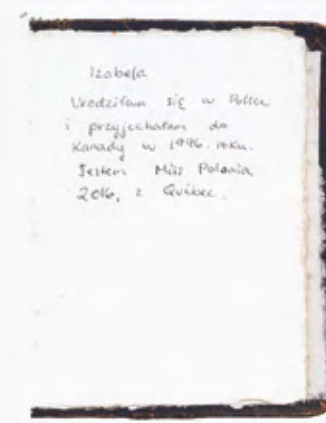 Izabela
Urodziłam się w Polsce
i przyjechałam do
Kanady w 1996. roku.
Jestem Miss Polonia
2016, z Quebec.